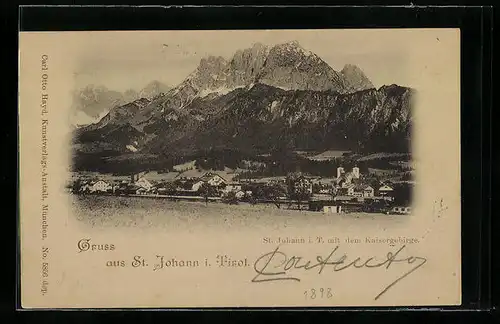 Carl Otto Hayd, Kunstverlags-Anstalt, München. No. 5893 dep.
St. Johann i. T. mit dem Kaisergebirge.
Gruss
aus St. Johann i. Tirol.
1898